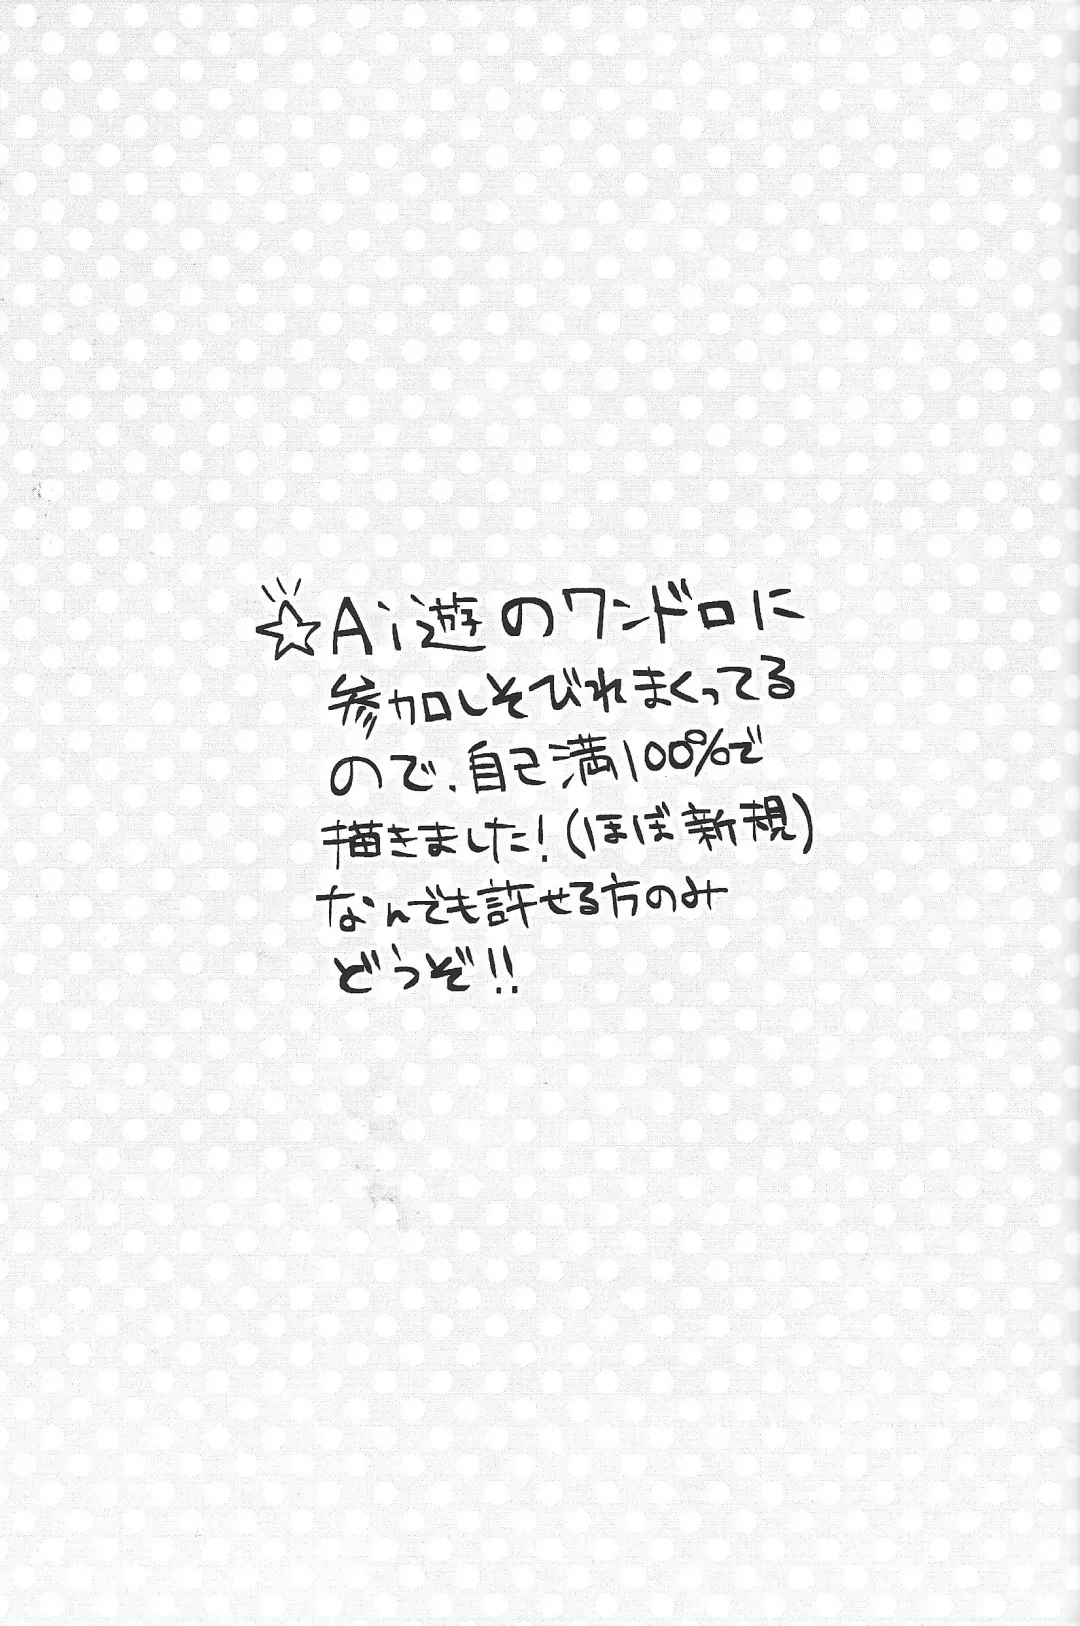 ☆Ai遊のワンドロに
参加しそびれまくってる
ので、自己満100%で
描きました!(ほぼ新規)
なんでも許せる方のみ
どうぞ!!